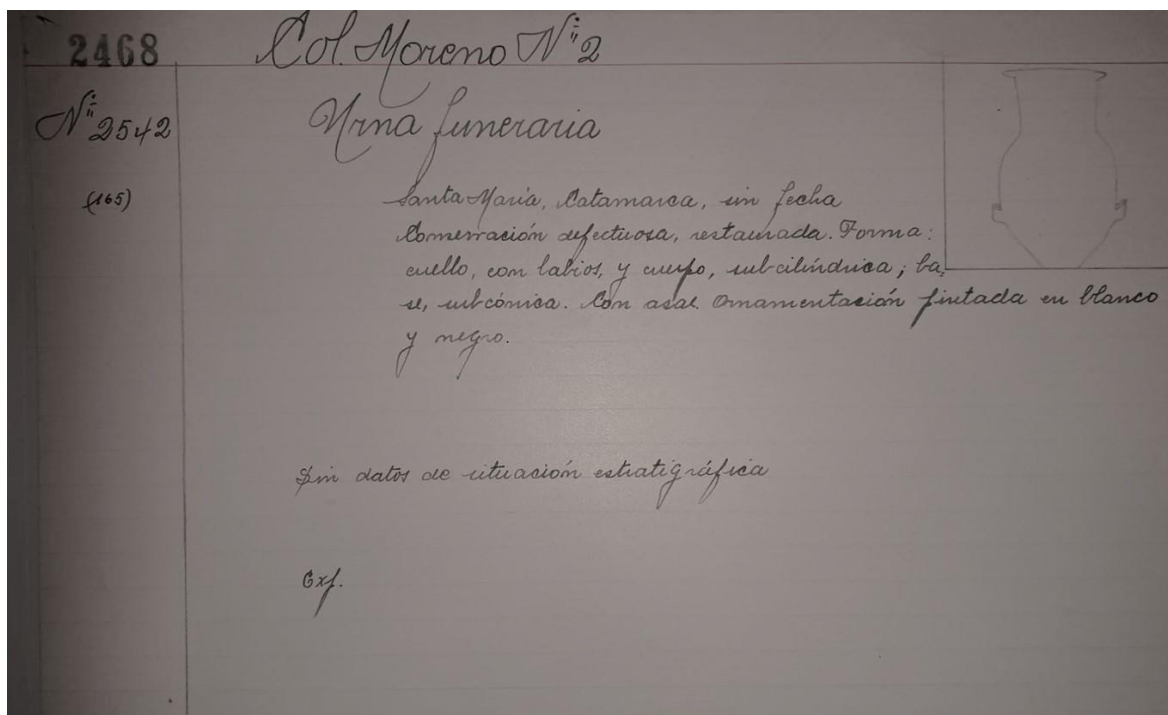 2468 Col. Moreno Nº 2
Nº 2542 Urna funeraria
(165) Santa María, Catamarca, sin fecha
Conservación defectuosa, restaurada. Forma:
cuello, con labios, y cuerpo, subcilíndrica; ba
se, subcónica. Con asas. Ornamentación pintada en blanco
y negro.
Sin datos de situación estratigráfica
Exp.